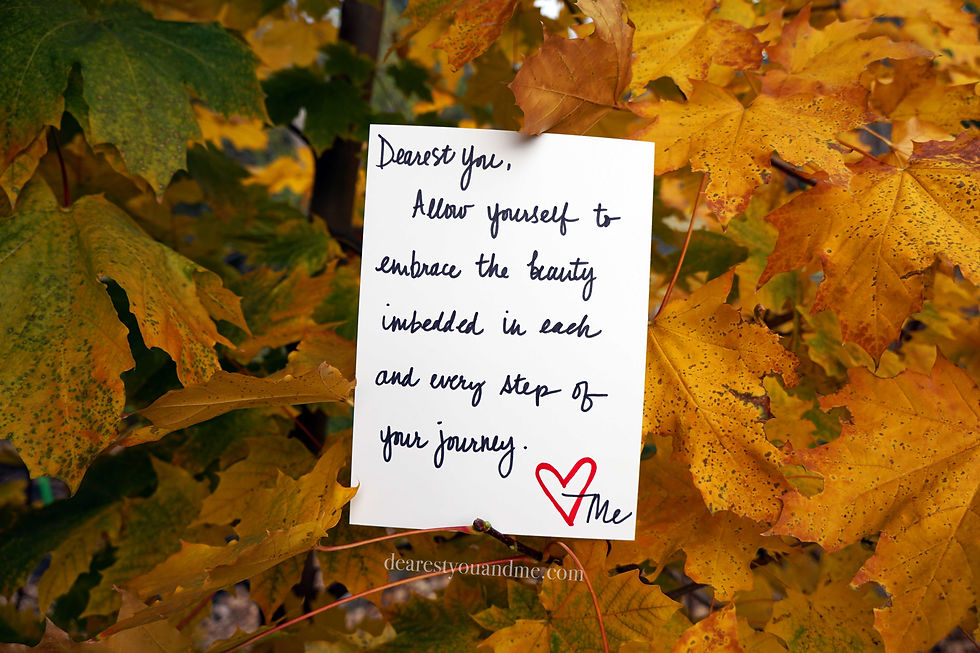 Dearest You,
Allow yourself to
embrace the beauty
imbedded in each
and every step of
your journey.
-Me
dearestyouandme.com